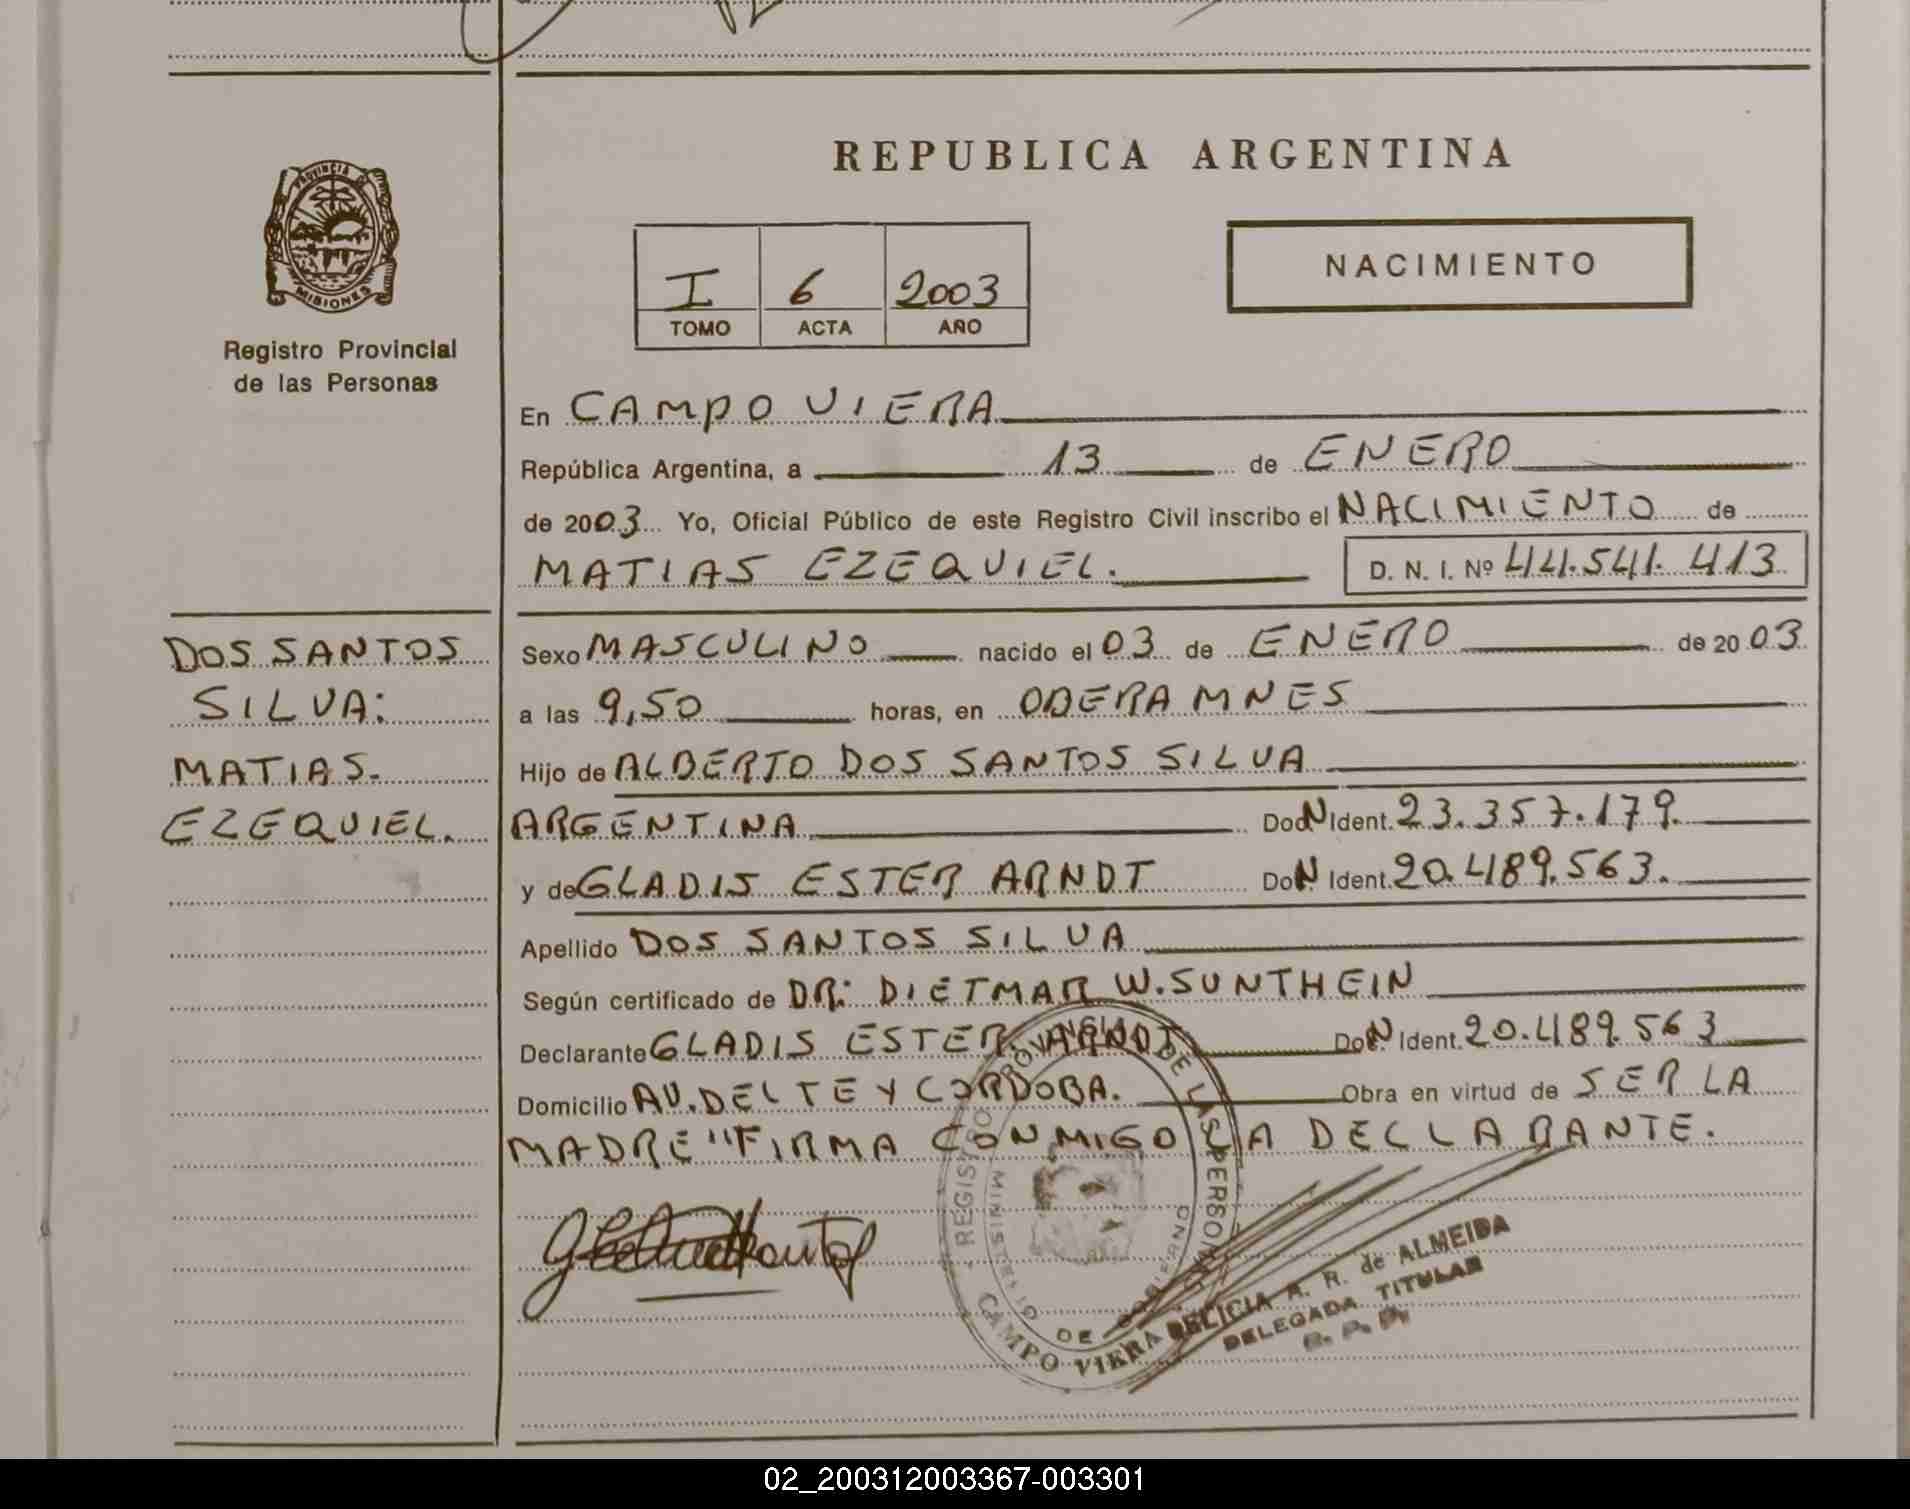 PROVINCIA DE
MISIONES
Registro Provincial
de las Personas
REPUBLICA ARGENTINA
I 6 2003
TOMO ACTA AÑO
NACIMIENTO
En CAMPO VIERA
República Argentina, a 13 de ENERO
de 2003 Yo, Oficial Público de este Registro Civil inscribo el NACIMIENTO de
MATIAS EZEQUIEL. D. N. I. Nº 44.541.413
DOS SANTOS
SILVA:
MATIAS.
EZEQUIEL.
Sexo MASCULINO nacido el 03 de ENERO de 2003
a las 9,50 horas, en OBERA MNES
Hijo de ALBERTO DOS SANTOS SILVA
ARGENTINA Doc N Ident. 23.357.179.
y de GLADIS ESTER ARNDT Doc N Ident. 20.489.563.
Apellido DOS SANTOS SILVA
Según certificado de DR: DIETMAR W. SUNTHEIN
Declarante GLADIS ESTER ARNDT Doc N Ident. 20.489.563
Domicilio AV. DEL TE Y CORDOBA. Obra en virtud de SER LA
MADRE "FIRMA CONMIGO LA DECLARANTE.
REGISTRO PROVINCIAL DE LAS PERSONAS
MINISTERIO DE GOBIERNO
CAMPO VIERA
DELICIA A. R. de ALMEIDA
DELEGADA TITULAR
R. P. P.
02_200312003367-003301